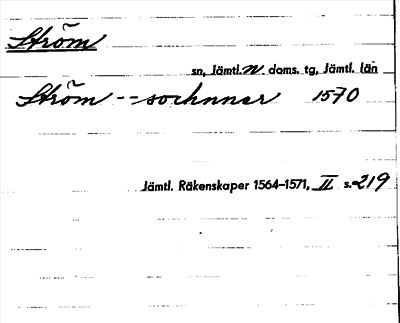 Ström
sn, Jämtl. N. doms. tg, Jämtl. län
Ström -- sochnner 1570
Jämtl. Räkenskaper 1564–1571, II s. 219